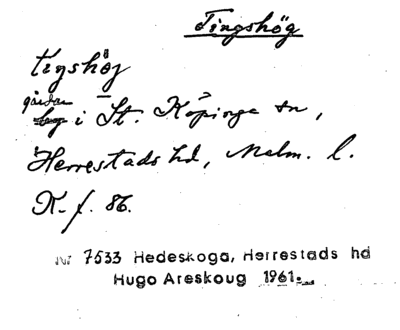 Tingshög
tiŋshøj
gårdar
i St. Köpinge sn,
Herrestads hd, Malm. l.
K-f. 86.
Nr 7533 Hedeskoga, Herrestads hd
Hugo Areskoug 1961.